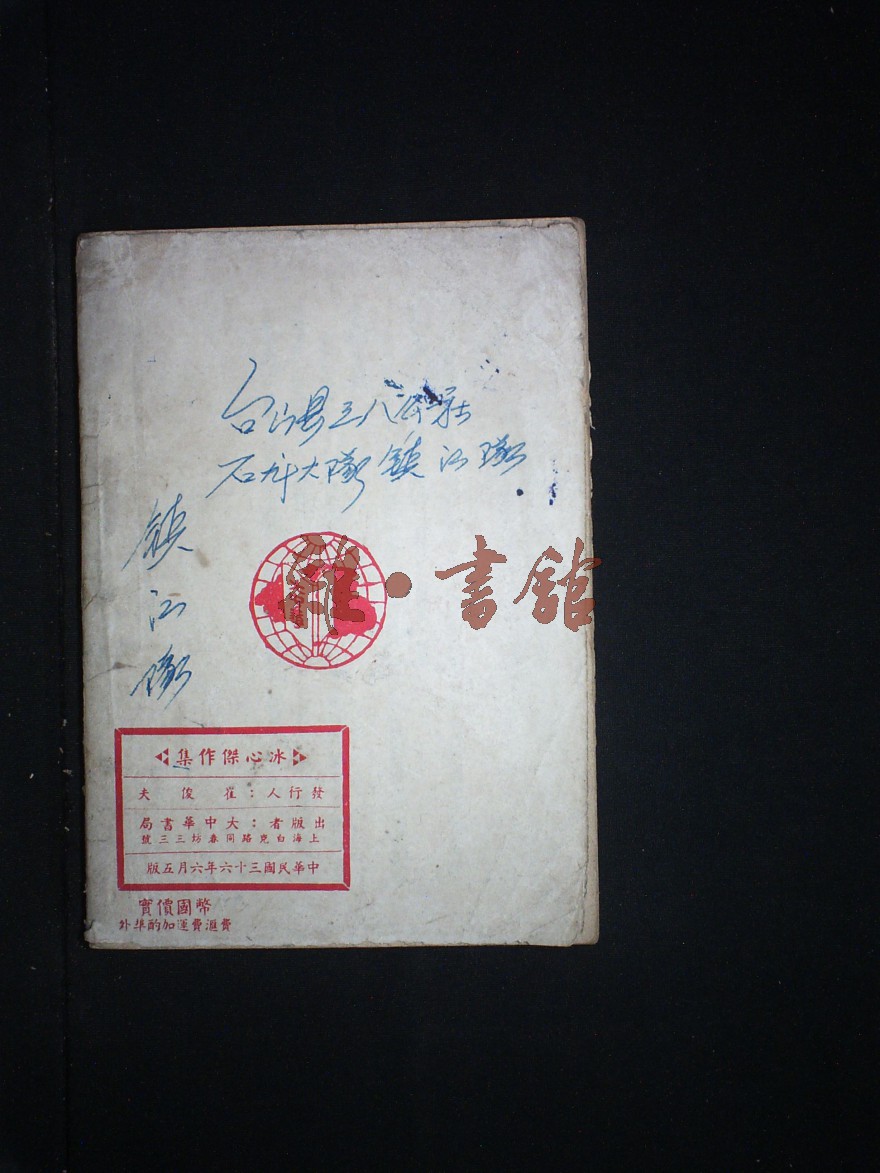 台山县三八公社
石井大隊 鎮江隊
鎮江隊
雜·書館
冰心傑作集
發行人：崔俊夫
出版者：大中華書局
上海白克路同春坊三三號
中華民國三十六年六月五版
實價國幣
外埠酌加運費滙費